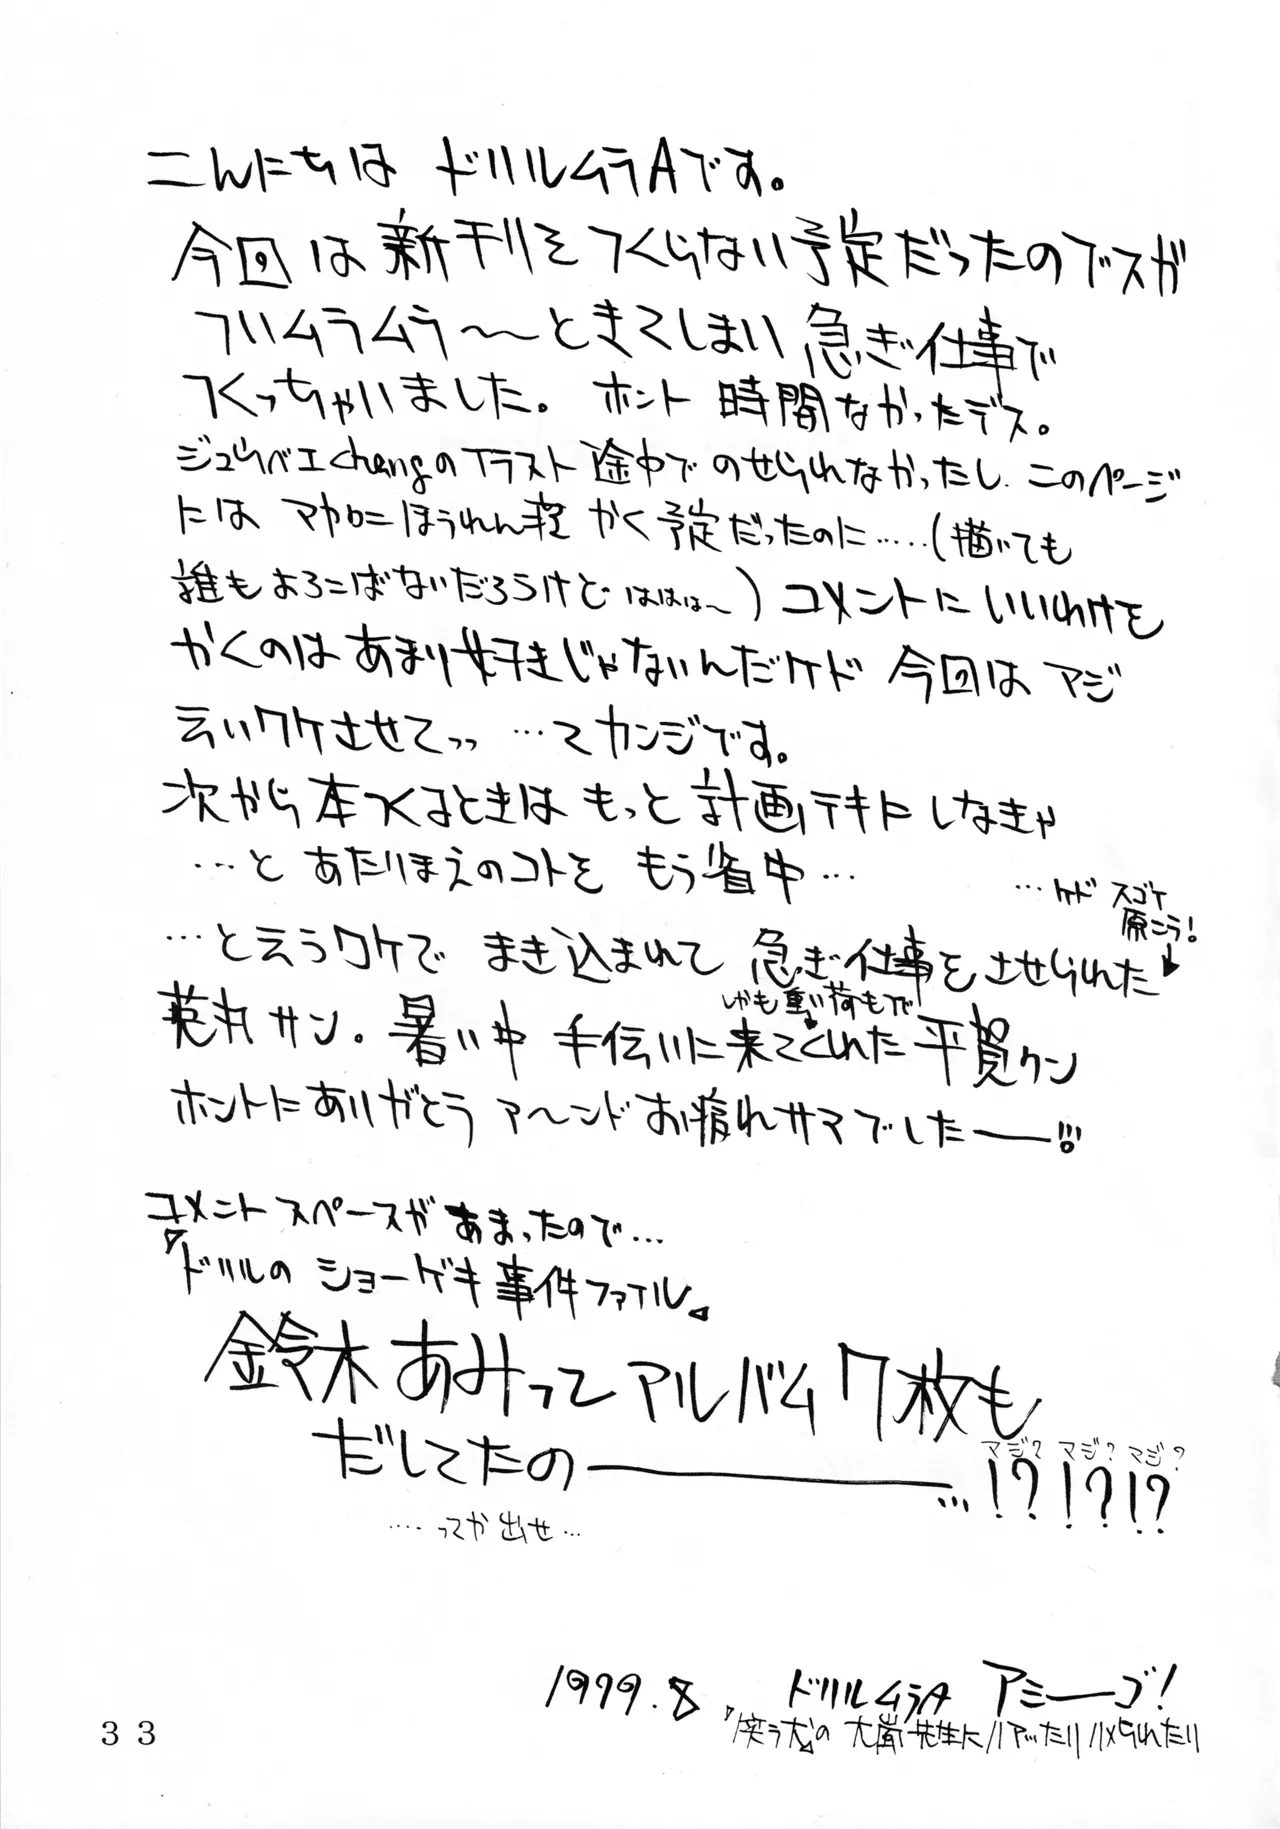 こんにちは ドリルムラAです。
今回は新刊をつくらない予定だったのでスガ
ついムラムラ〜〜ときてしまい 急ぎ仕事で
つくっちゃいました。 ホント 時間なかったデス。
ジュウベエchangのイラスト 途中で のせられなかったし このページ
には マカロニほうれん荘 かく予定だったのに……(描いても
誰もよろこばないだろうけど ははは〜) コメントにいいわけを
かくのはあまり好きじゃないんだケド 今回は マジ
云いワケさせてッッ …てカンジです。
次から本つくるときは もっと 計画テキに しなきゃ
…と あたりまえのコトを もう省中…
…ケド スゴイ
原こう!
…と云うワケで まき込まれて 急ぎ仕事をさせられた
しかも重い荷もつで
英丸サン。暑い中 手伝いに来てくれた 平賀クン
ホントにありがとう アーンド お疲れサマでしたーー!!
コメントスペースが あまったので…
『ドリルの ショーゲキ 事件ファイル』
鈴木あみって アルバム7枚も
だしてたのーーー…!?!?!?
マジ? マジ? マジ?
……ってか 出せ…
1999.8 ドリルムラA アミーゴ!
『笑う犬』の 大嵐 先生に ハマったり ハメられたり
33